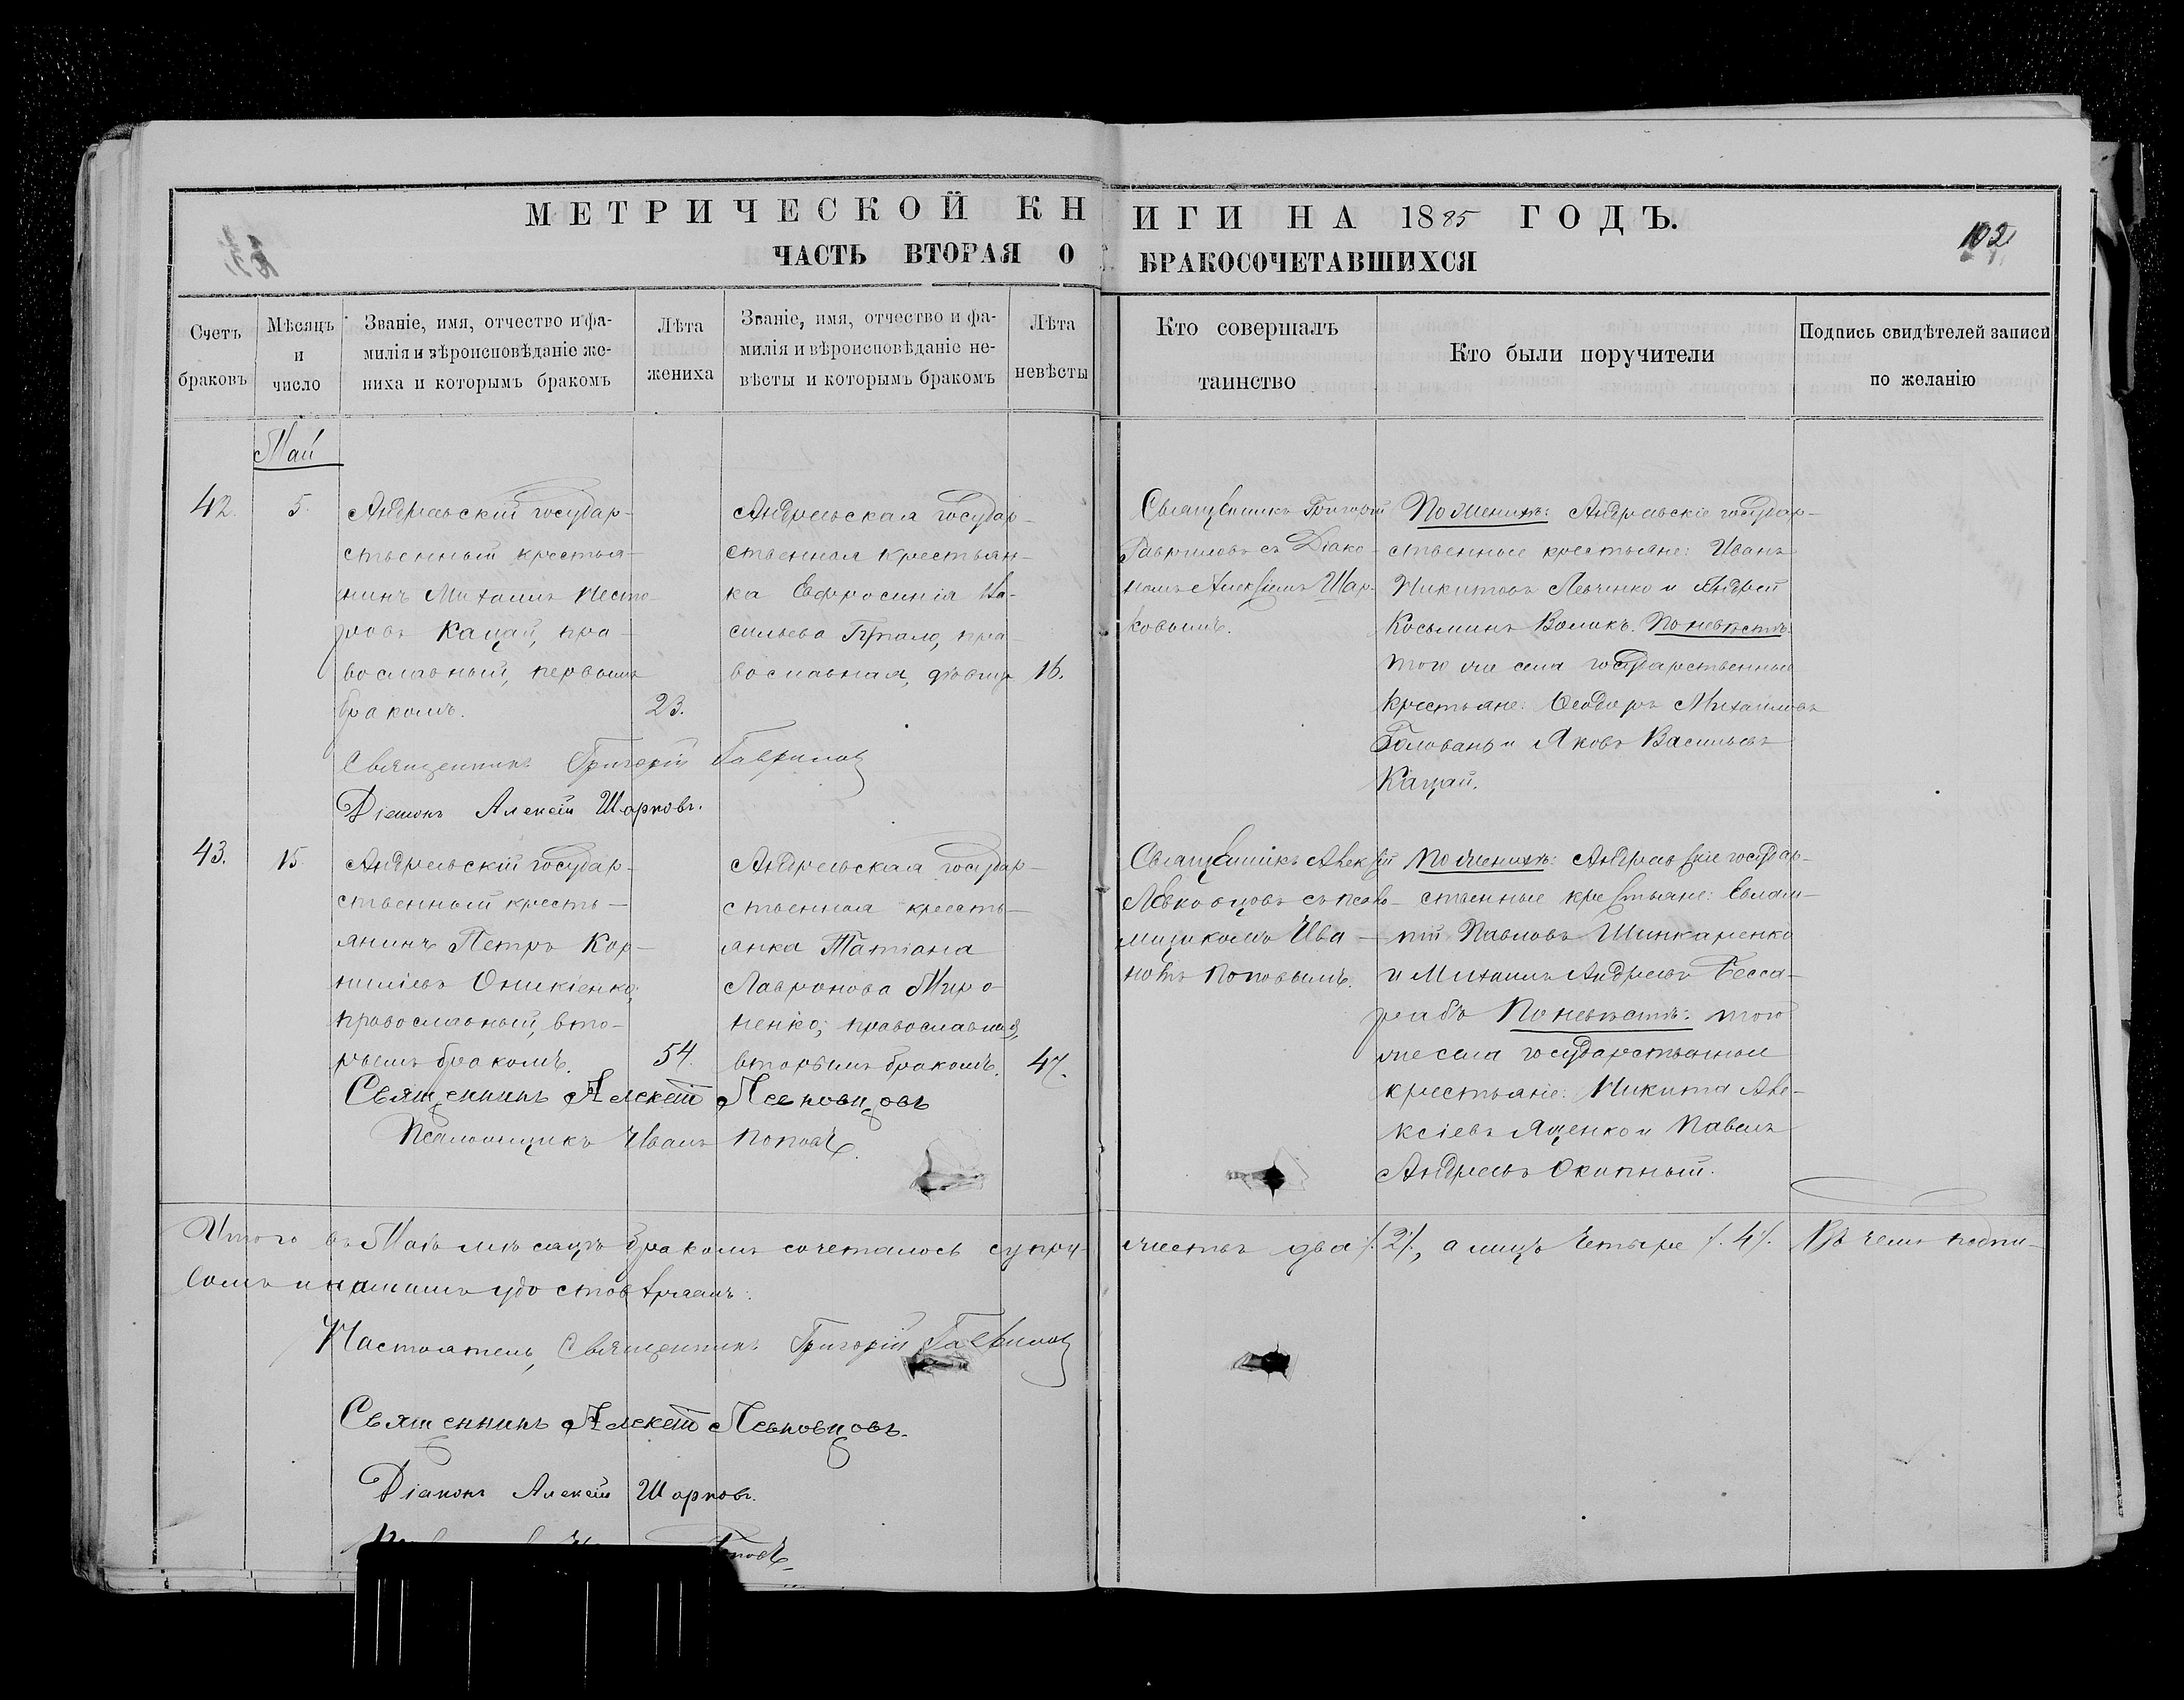 МЕТРИЧЕСКОЙ КНИГИ НА 1885 ГОДЪ.
ЧАСТЬ ВТОРАЯ О БРАКОСОЧЕТАВШИХСЯ
102
Счетъ
браковъ
Мѣсяцъ
и
число
Званіе, имя, отчество и фа-
милія и вѣроисповѣданіе же-
ниха и которымъ бракомъ
Лѣта
жениха
Званіе, имя, отчество и фа-
милія и вѣроисповѣданіе не-
вѣсты и которымъ бракомъ
Лѣта
невѣсты
Кто совершалъ
таинство
Кто были поручители
Подпись свидѣтелей записи
по желанію
Май
42.
5.
Андреевскій государ-
ственный крестья-
нинъ Михаилъ Несто-
ровъ Кацай, пра-
вославный, первымъ
бракомъ.
23.
Андреевская государ-
ственная крестьян-
ка Евфросинія Ва-
сильева, пра-
вославная, дѣвица
16.
Священникъ Григорій
Гавриловъ съ Діако-
номъ Алексіемъ Шар-
ковымъ.
По женихѣ: Андреевскіе государ-
ственные крестьяне: Иванъ
Никитовъ Левченко и Андрей
Косьминъ Воликъ. По невѣстѣ:
того же села государственные
крестьяне: Ѳеодоръ Михаиловъ
Головань и Яковъ Васильевъ
Кацай.
Священникъ Григорій Гавриловъ
Діаконъ Алексѣй Шарковъ.
43.
15.
Андреевскій государ-
ственный кресть-
янинъ Петръ Кор-
ниліевъ Оникіенко,
православный, вто-
рымъ бракомъ.
54.
Андреевская государ-
ственная кресть-
янка Татіана
Лавронова Миро-
ненко, православная,
вторымъ бракомъ.
47.
Священникъ Алексѣй
Левковцовъ съ псало-
мщикомъ Ива-
номъ Поповымъ.
По женихѣ: Андреевскіе государ-
ственные крестьяне: Евлам-
пій Павловъ Шинкаренко
и Михаилъ Андреевъ Бесса-
рабъ По невѣстѣ: того
же села государственные
крестьяне: Никита Але-
ксіевъ Яценко и Павелъ
Андреевъ Окипный.
Священникъ Алексѣй Левковцовъ
Псаломщикъ Иванъ Поповъ.
Итого въ Маѣ мѣсяцѣ бракомъ сочеталось супружествъ два /2/, а лицъ четыре /4/. Въ чемъ подпи-
сомъ нашимъ удостовѣряемъ:
Настоятель, Священникъ Григорій Гавриловъ
Священникъ Алексѣй Левковцовъ.
Діаконъ Алексѣй Шарковъ.